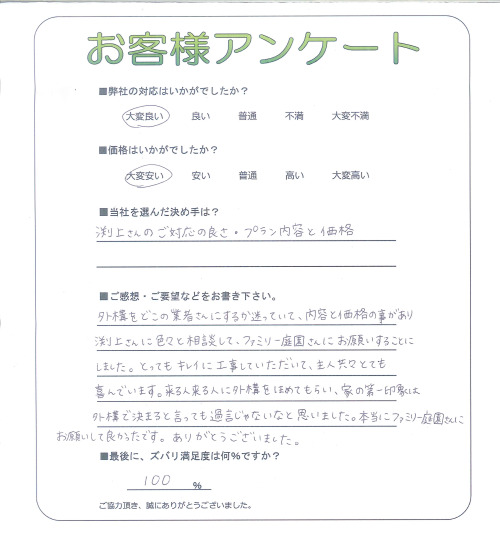 お客様アンケート
■弊社の対応はいかがでしたか？
大変良い 良い 普通 不満 大変不満
■価格はいかがでしたか？
大変安い 安い 普通 高い 大変高い
■当社を選んだ決め手は？
渕上さんのご対応の良さ・プラン内容と価格
■ご感想・ご要望などをお書き下さい。
外構をどこの業者さんにするか迷っていて、内容と価格の事があり
渕上さんに色々と相談して、ファミリー庭園さんにお願いすることに
しました。とっても キレイに工事していただいて、主人共々とても
喜んでいます。来る人来る人に外構をほめてもらい、家の第一印象は
外構で決まると言っても過言じゃないなと思いました。本当にファミリー庭園さんに
お願いして良かったです。ありがとうございました。
■最後に、ズバリ満足度は何%ですか？
100 %
ご協力頂き、誠にありがとうございました。